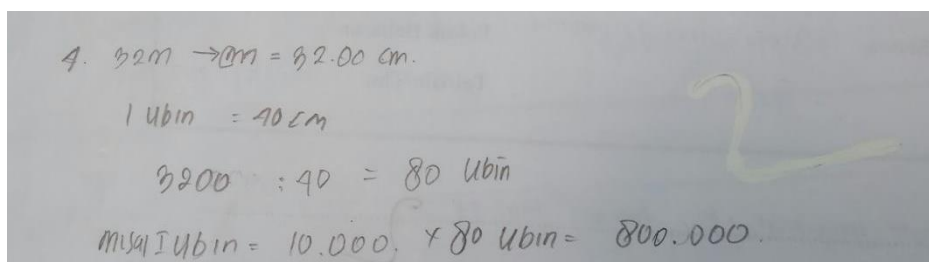 4. 32m → cm = 32.00 cm.
1 ubin = 40 cm
3200 : 40 = 80 ubin
misal 1 ubin = 10.000. x 80 ubin = 800.000.
2